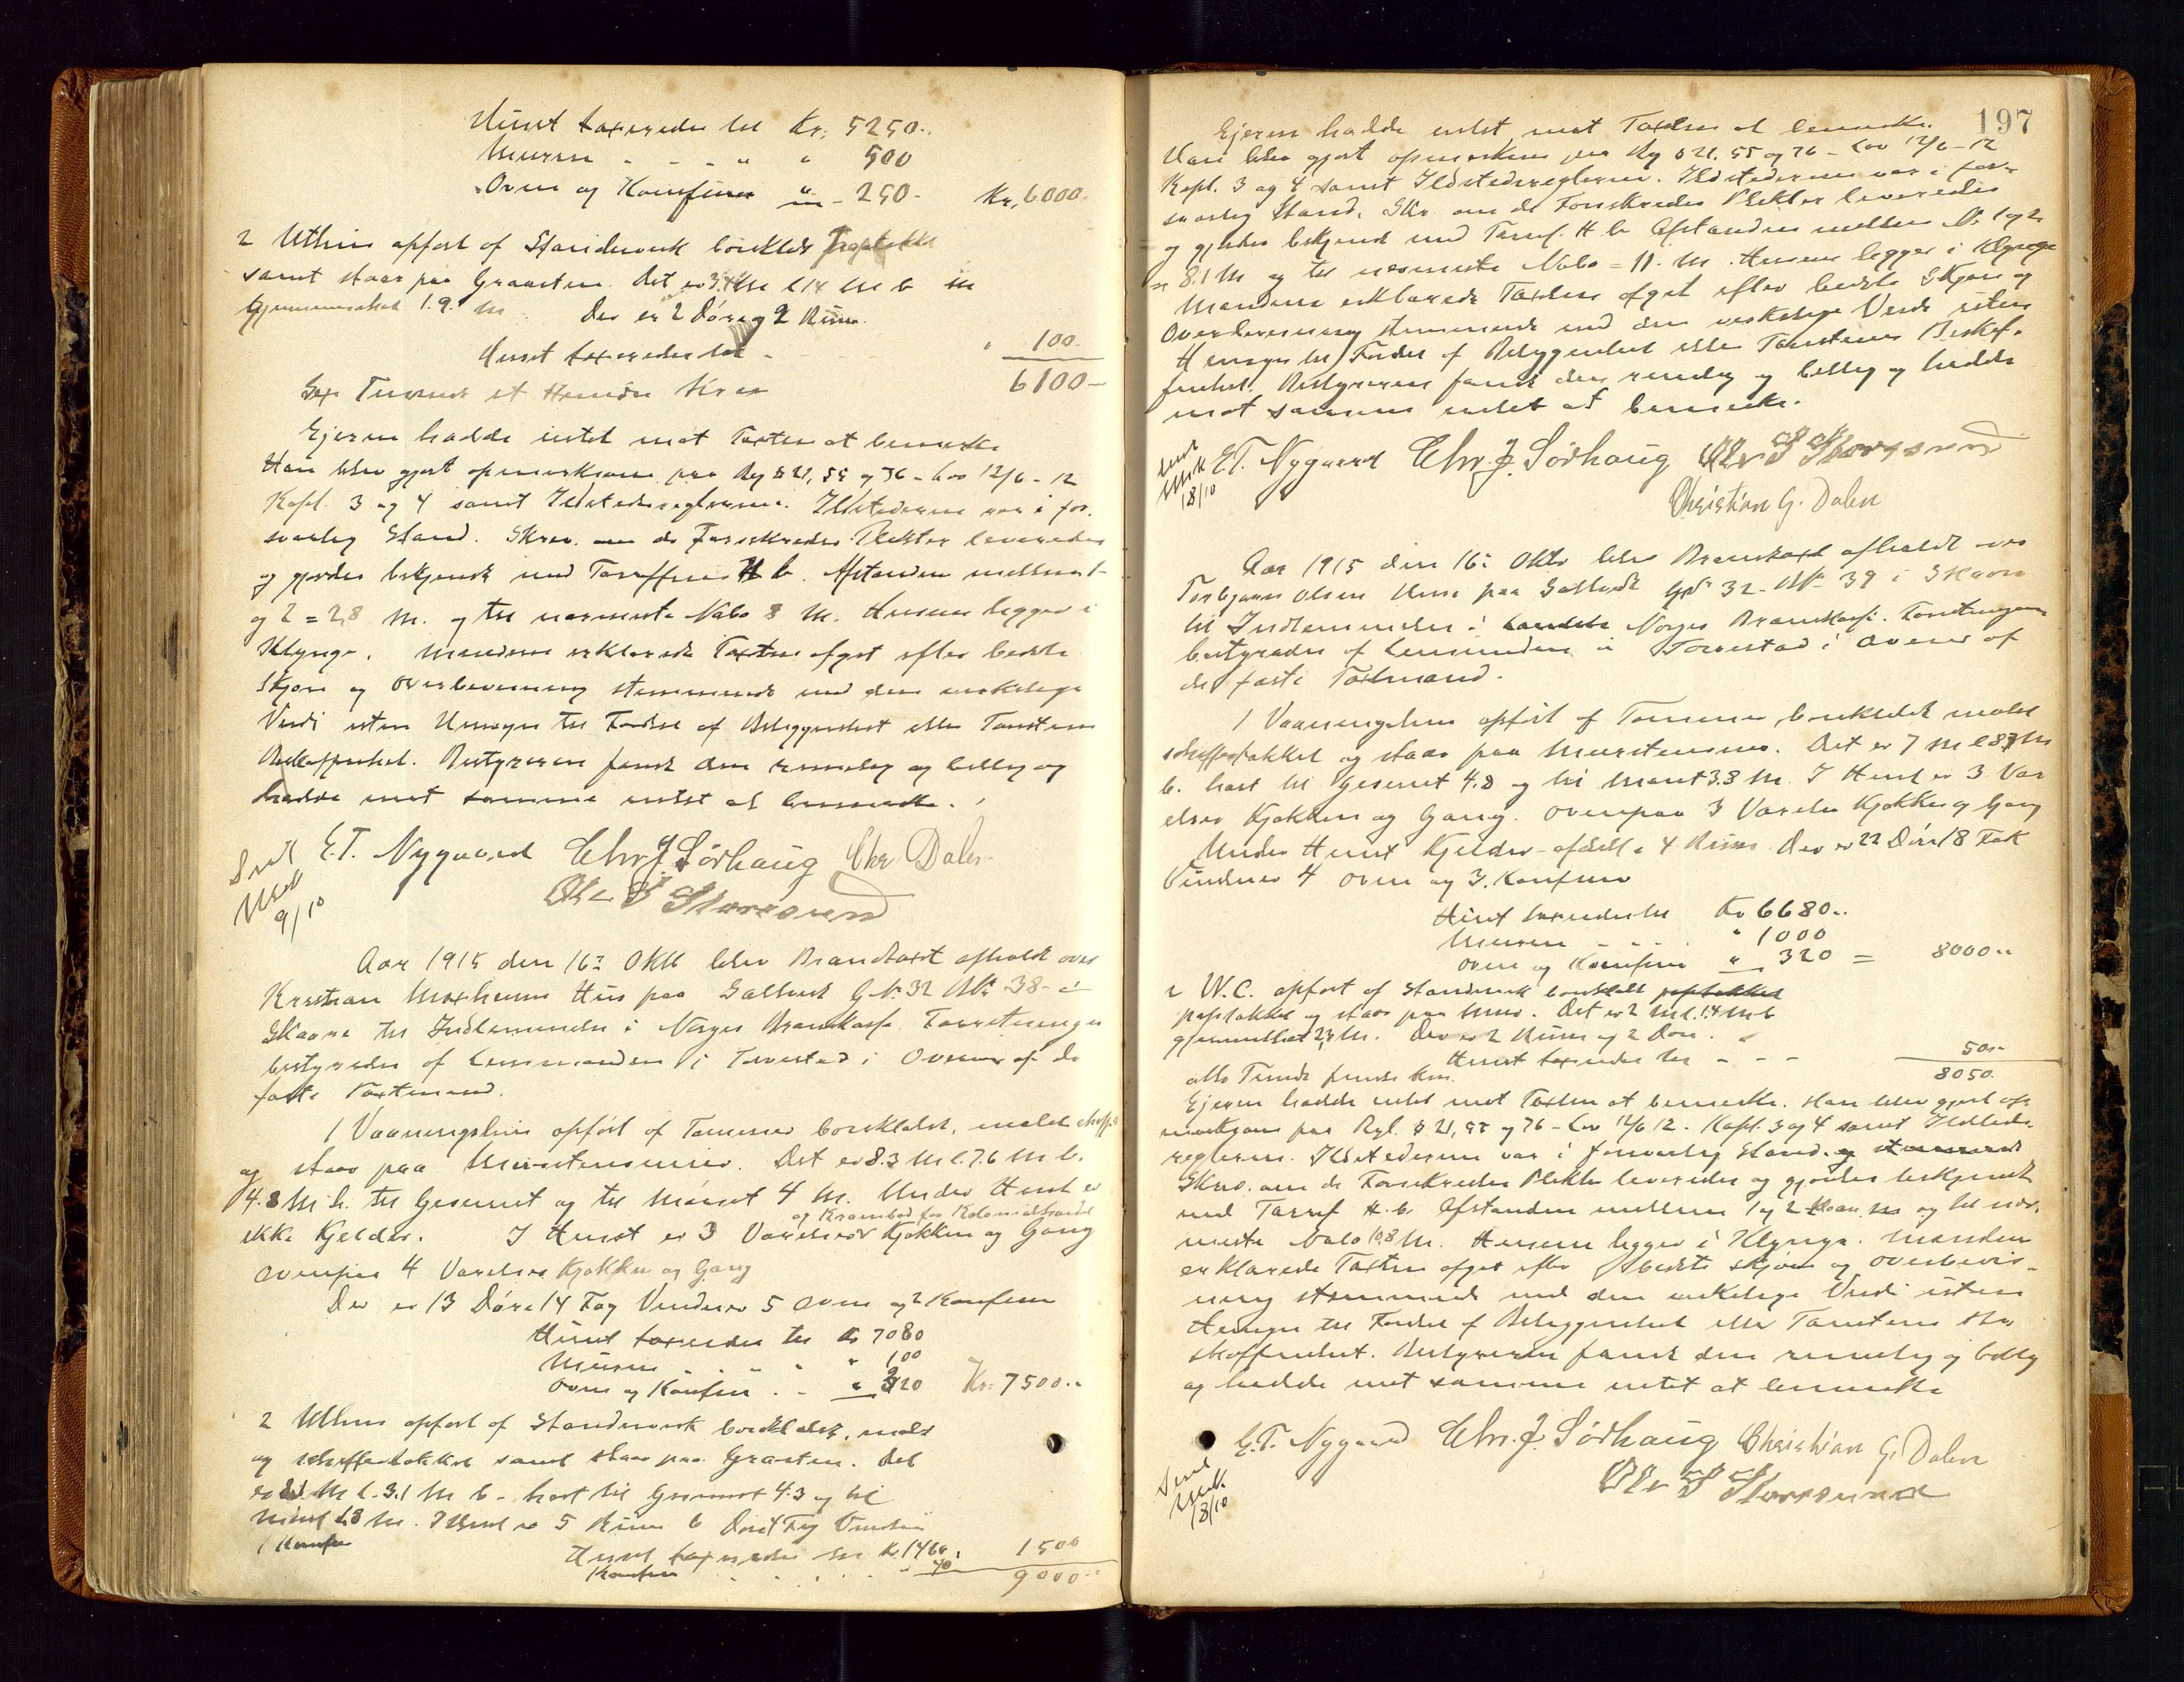 Huset taxeredes til Kr. 5250..
Muren - - - " " 500
Oven og Komfuren " - 250 - Kr. 6000.
2 Uthus opført af Standerverk bordklædt
samt staar paa Graasten. Det er 3.4 M l 1.4 M b
Gjennemsnitet 1.9. M Der er 2 Døre og 2 Rum.
Huset taxeredes til - " 100-
Sex Tusende et Hundre Kroner 6100-
Ejeren hadde intet mot Taxten at bemerke
Han blev gjort opmerksom paa Rg § 21, 55 og 76 - Lov 12/6 - 12
Kapl. 3 og 4 samt Ildstedsreglerne. Ildstederne var i for-
svarlig Stand. Skrev. om de Forsikredes Plikter leveredes
og gjordes bekjendt med Tariffen H b. Afstanden mellem 1
og 2 = 2,8 M. og til nærmeste Nabo 8 M. Husene ligger i
Klynge. Mændene erklærede Taxten afgit efter bedste
Skjøn og Overbevisning stemmende med den virkelige
Verdi uten Hensyn til Fordel af Beliggenhet eller Tomtens
Beskaffenhet. Bestyreren fandt den rimelig og billig og
hadde mot samme intet at bemerke.
Sendt
Utsk
9/10
E.T. Nygaard Chr. J. Sörhaug Chr Dalen
Ole S Storesund
Aar 1915 den 16de Oktb blev Brandtaxt afholdt over
Kristian Moxheims Hus paa Salhus G.Nr. 32 BNr. 38 - i
Skaare til Indlemmelse i Norges Brandkasse. Forretningen
bestyredes af Lensmanden i Torvestad i Overvær af de
faste Taxtmænd.
1 Vaaningshus opført af Tømmer bordklædt, malet
og staar paa Murstensmur. Det er 8.3 M l. 7.6 M b.
4.8 M h. til Gesemet og til Mønet 4 M. Under Huset er
og Krambod for Kolonialhandel
ikke Kjelder. I Huset er 3 Værelser Kjøkken og Gang
Ovenpaa 4 Værelser Kjøkken og Gang
Der er 13 Døre 14 Fag Vinduer 5 Ovne og 2 Komfur
Huset taxeredes til Kr 7080
Muren - - - " " 100
Ovne og Komfur - - " 320 Kr. 7500..
2 Uthus opført af Standerverk bordklædt, malt
og skiffertækket samt staar paa Graasten. Det
er M l. 3.1 M b - høit til Gesemet 4.3 og til
Mønet 1.8 M. I Huset er 5 Rum 6 Døre 4 Fag Vinduer
1 Komfur
Huset taxeredes til Kr. 1460. 1500
Komfur - - - " 40 9000..
197
Ejeren hadde intet mot Taxten at bemerke.
Han blev gjort opmerksom paa Rg § 21. 55 og 76 - Lov 12/6 - 12
Kapl. 3 og 4 samt Ildstedsreglerne. Ildstederne var i for-
svarlig Stand. Skr. om de Forsikredes Plikter leveredes
og gjordes bekjendt med Tarif. H. b. Afstanden mellem Nr. 1 og 2
= 8.1 M og til nærmeste Nabo = 11. M. Husene ligger i Klynge
Mændene erklærede Taxten afgit efter bedste Skjøn og
Overbevisning stemmende med den virkelige Verdi uten
Hensyn til Fordel af Beliggenhet eller Tomtens Beskaf-
fenhet. Bestyreren fandt den rimelig og billig og hadde
mot samme intet at bemerke.
Sendt
Utsk
18/10
E.T. Nygaard Chr. J. Sörhaug Ole S Storesund
Christian G. Dalen
Aar 1915 den 16de Oktb blev Brandtaxt afholdt over
Torbjørn Olsens Hus paa Salhus GNr 32 - BNr 39 i Skaare
til Indlemmelse i Norges Brandkasse. Forretningen
bestyredes af Lensmanden i Torvestad i Overvær af
de faste Taxtmænd.
1 Vaaningshus opført af Tømmer, bordklædt malet
skiffertækket og staar paa Murstensmur. Det er 7 M l 8.7 M
b. høit til Gesemet 4.8 og til Mønet 3.8 M. I Huset er 3 Vær
elser Kjøkken og Gang. Ovenpaa 3 Værelser Kjøkken og Gang
Under Huset Kjelder - afdelt i 4 Rum. Der er 22 Døre 18 Fak
Vinduer 4 Ovne og 3. Komfur
Huset taxeredes til Kr 6680..
Muren - - - " 1000
Ovne og Komfur " 320 = 8000..
2 W.C. opført af Standerverk bordklædt paptækket
paptækket og staar paa Mur. Det er 2 M l. 1.4 M b
gjennemsnitet 2,3 M. Der er 2 Rum og 2 Døre.
Huset taxeredes til - - - 50..
otte Tusende femti Kr. 8050.
Ejeren hadde intet mot Taxten at bemerke. Han blev gjort op-
merksom paa Rgl. § 21, 55 og 76 - Lov 12/6 12. Kapl. 3 og 4 samt Ildsteds-
reglerne. Ildstederne var i forsvarlig Stand. og stemmende
Skrev. om de Forsikredes Plikter leveredes og gjordes bekjendt
med Tarif H. b. Afstanden mellem 1 og 2 og til nær-
meste Nabo 10,8 M. Husene ligger i Klynge. Mændene
erklærede Taxten afgit efter bedste Skjøn og Overbevis-
ning stemmende med den virkelige Verdi uten
Hensyn til Fordel af Beliggenhet eller Tomtens Be-
skaffenhet. Bestyreren fandt den rimelig og billig
og hadde mot samme intet at bemerke
Sendt
Utsk.
18/10
E.T. Nygaard Chr. J. Sörhaug Christian G. Dalen
Ole S Storesund